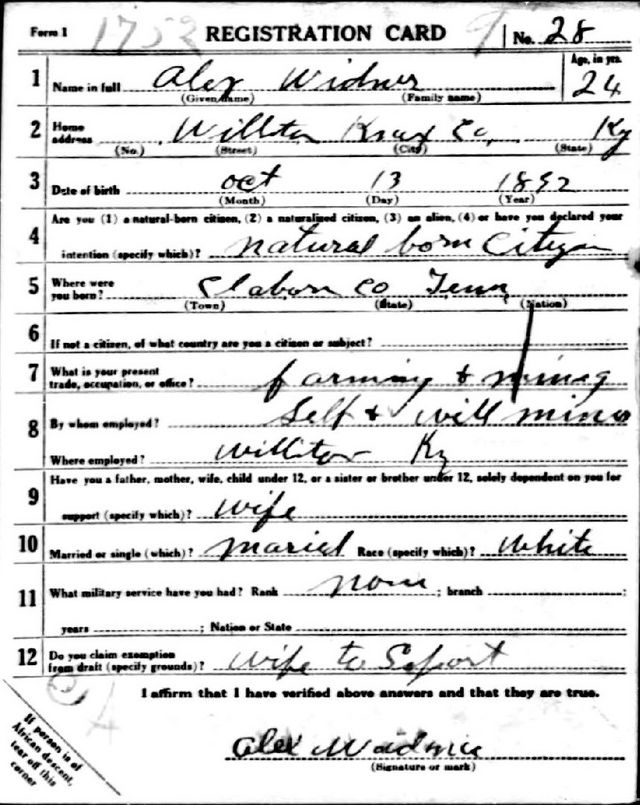 Form 1 1752 REGISTRATION CARD No. 28
1 Name in full Alex Widner Age, in yrs. 24
(Given name) (Family name)
2 Home address Knax Co, Ky
(No.) (Street) (City) (State)
3 Date of birth Oct 13 1892
(Month) (Day) (Year)
4 Are you (1) a natural-born citizen, (2) a naturalized citizen, (3) an alien, (4) or have you declared your
intention (specify which)? natural born Citezen
5 Where were you born? Claborn Co Tenn,
(Town) (State) (Nation)
6 If not a citizen, of what country are you a citizen or subject?
7 What is your present trade, occupation, or office? farming & mineg
8 By whom employed? Self & will mines
Where employed? Ky
9 Have you a father, mother, wife, child under 12, or a sister or brother under 12, solely dependent on you for
support (specify which)? wife
10 Married or single (which)? maried Race (specify which)? White
11 What military service have you had? Rank ; branch ;
years ; Nation or State
12 Do you claim exemption from draft (specify grounds)? wife to Saport
I affirm that I have verified above answers and that they are true.
If person is of
African descent,
tear off this
corner
Alex
(Signature or mark)